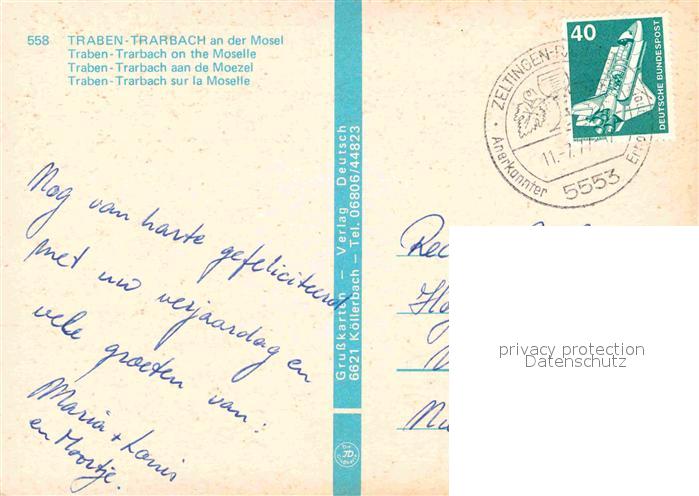 558 TRABEN-TRARBACH an der Mosel
Traben-Trarbach on the Moselle
Traben-Trarbach aan de Moezel
Traben-Trarbach sur la Moselle
40
DEUTSCHE BUNDESPOST
ZELTINGEN-R
11.-7.77
Anerkannter Erho
5553
Nog van harte gefeliciteerd
met uw verjaardag en
vele groeten van:
Maria + Louis
en Moortje.
Grußkarten – Verlag Deutsch
6621 Köllerbach – Tel. 06806/44823
JD
privacy protection
Datenschutz